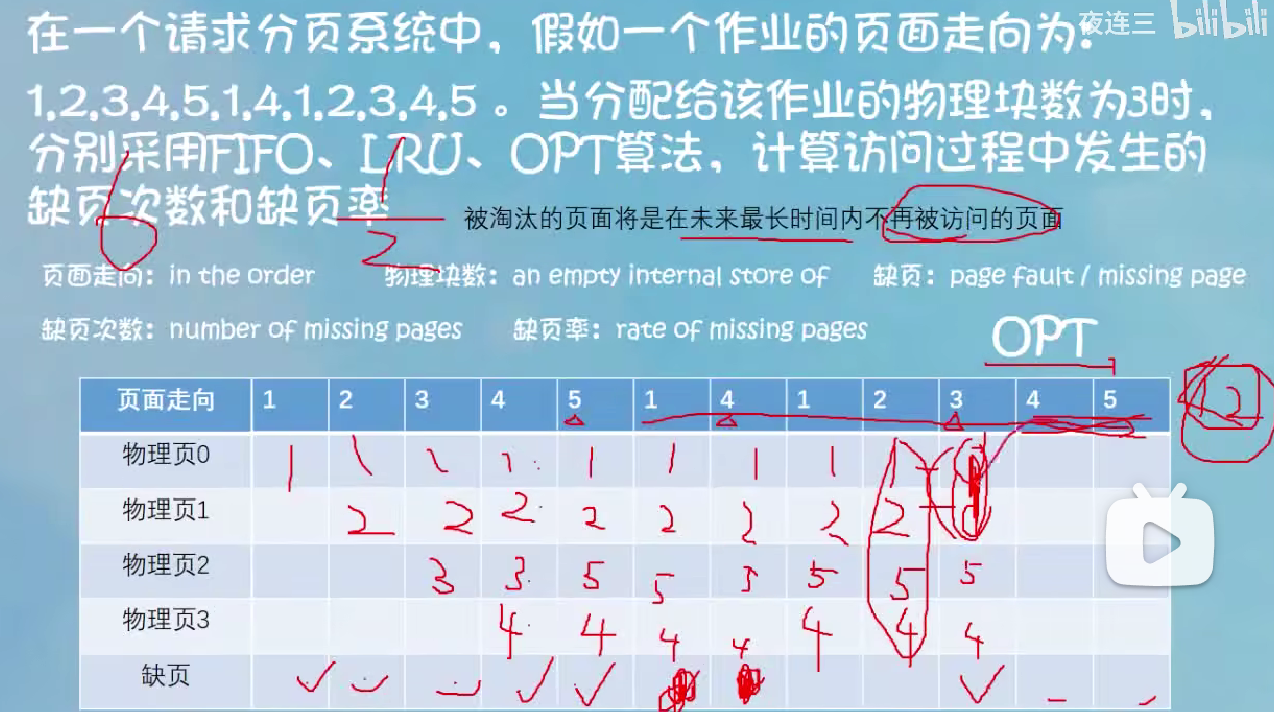 夜连三 bilibili
在一个请求分页系统中，假如一个作业的页面走向为：
1.2.3.4.5.1.4.1.2.3.4.5 。当分配给该作业的物理块数为3时，
分别采用FIFO、LRU、OPT算法，计算访问过程中发生的
缺页次数和缺页率
6 1
2
被淘汰的页面将是在未来最长时间内不再被访问的页面
页面走向：in the order 物理块数：an empty internal store of 缺页：page fault / missing page
缺页次数：number of missing pages 缺页率：rate of missing pages
OPT
页面走向 1 2 3 4 5 1 4 1 2 3 4 5
物理页0 1 1 1 1 1 1 1 1 1
物理页1 2 2 2 2 2 2 2 2
物理页2 3 3 5 5 5 5 5 5
物理页3 4 4 4 4 4 4 4
缺页